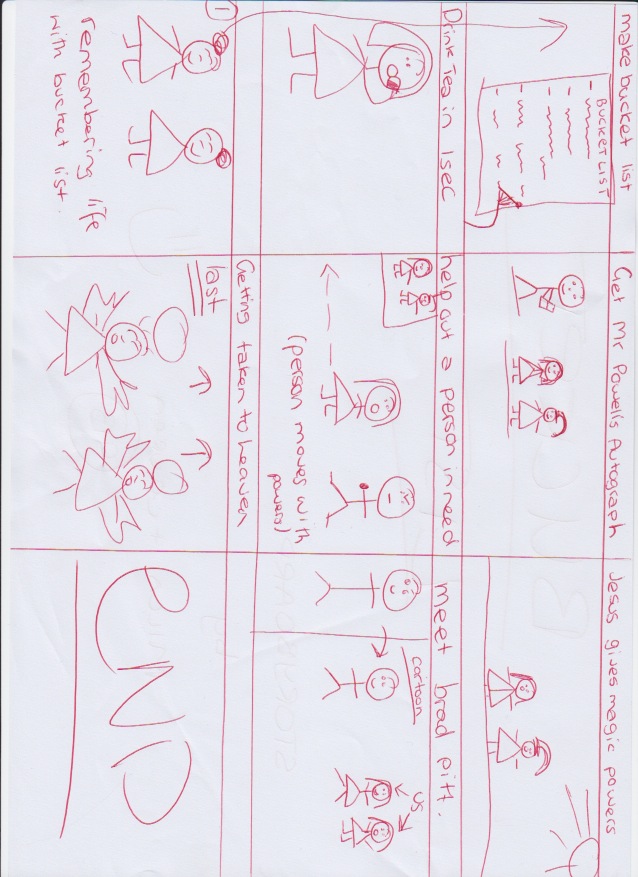 make bucket list
BUCKET LIST
Get Mr Powells Autograph
Jesus gives magic powers
Drink Tea in 1sec
help out a person in need
(person moves with
powers)
meet brad pitt.
cartoon
us
1
remembering life
with bucket list.
Getting taken to heaven
last
END